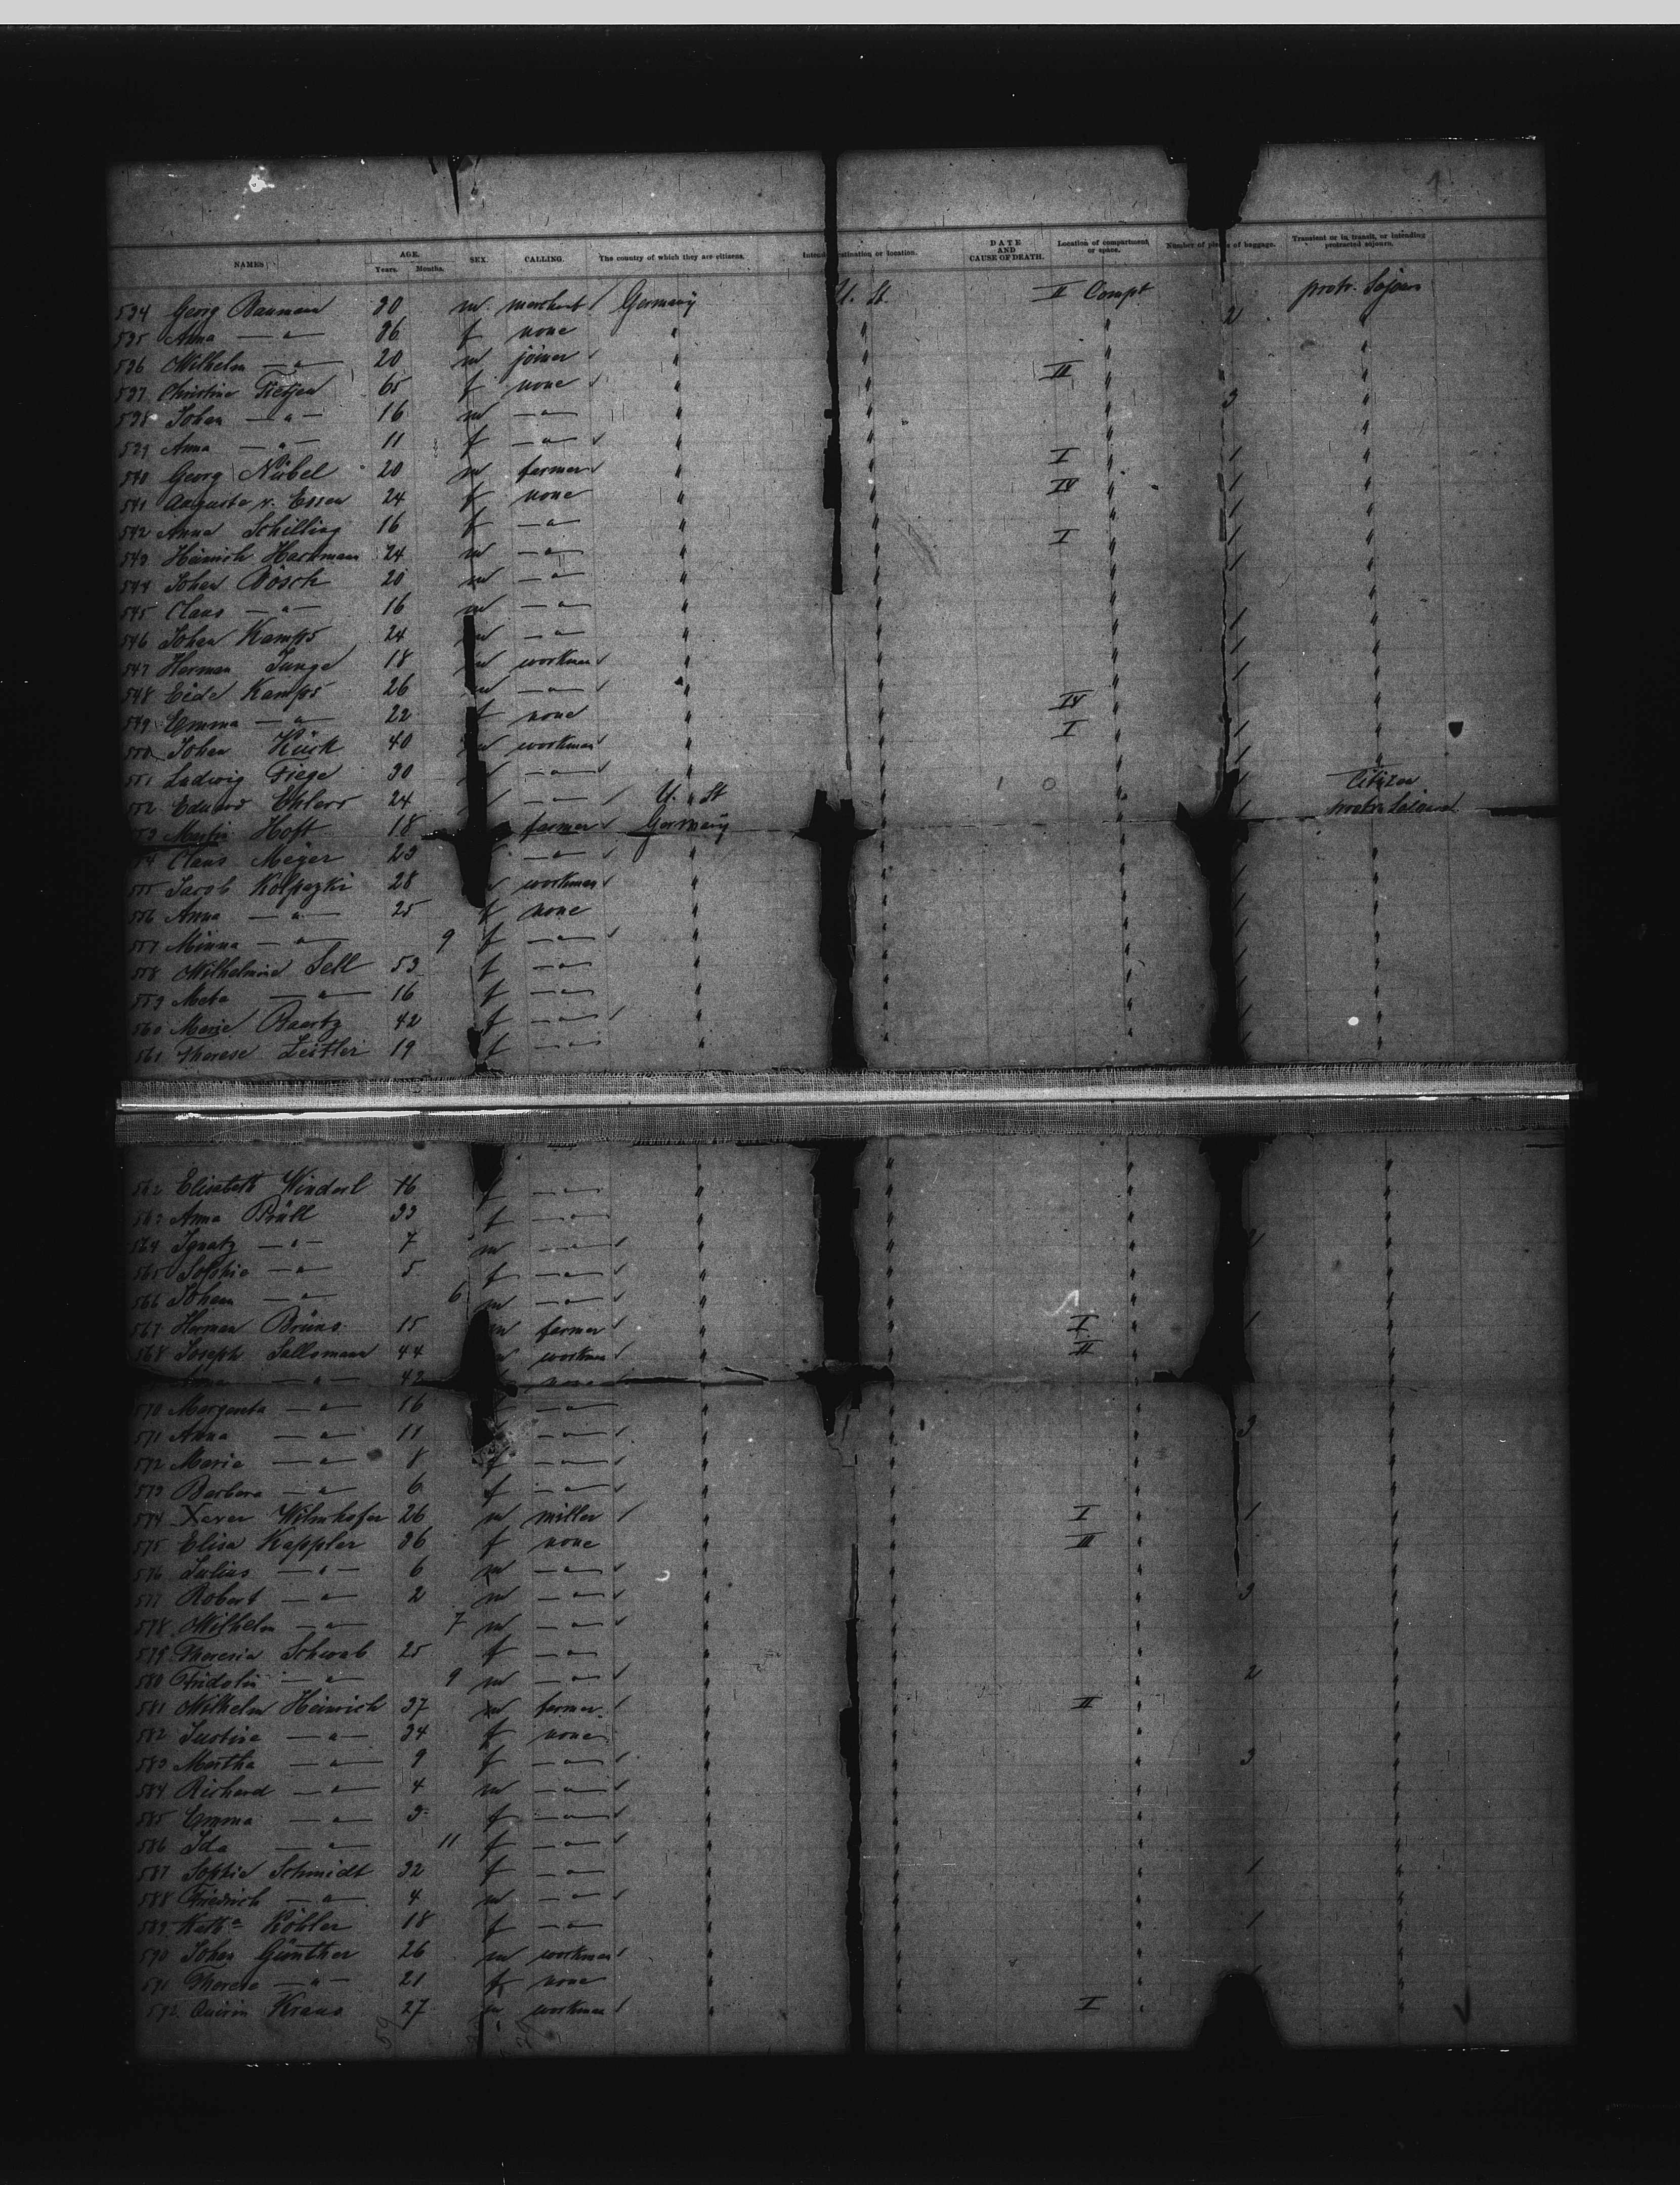 NAMES AGE. Years. Months. SEX. CALLING. The country of which they are citizens. Intended destination or location. DATE AND CAUSE OF DEATH. Location of compartment or space. Number of pieces of baggage. Transient or in transit, or intending protracted sojourn.
534 Georg Baumann 30 m merchant Germany U. St. II Compt protr. Sojourn
535 Anna — " — 36 f none " " " 2 "
536 Wilhelm — " — 20 m joiner " " " "
537 Christine Tietjen 65 f none " " II " "
538 Johan — " — 16 m — " — " " " 3 "
539 Anna — " — 11 f — " — " " " "
540 Georg Nübel 20 m farmer " " I " 1 "
541 Auguste v. Essen 24 f none " " IV " 1 "
542 Anna Schilling 16 f — " — " " " 1 "
543 Heinrich Hackman 24 m — " — " " I " 1 "
544 Johan Bösch 20 m — " — " " " "
545 Claus — " — 16 m — " — " " " "
546 Johan Kamps 24 m — " — " " " 1 "
547 Herman Junge 18 m workman " " " 1 "
548 Eide Kamps 26 m — " — " " " 1 "
549 Emma — " — 22 f none " " IV " "
550 Johan Kück 40 m workman " " I " 1 "
551 Ludwig Fiege 30 — " — " " " 1 "
552 Eduard Ehlers 24 — " — U. St " " 1 Citizen
553 Martin Hoft 18 farmer Germany " " 1 protr. Sojourn
554 Claus Meyer 23 — " — " " " "
555 Jacob Kolpazki 28 workman " " " 1 "
556 Anna — " — 25 f none " " " "
557 Minna — " — 9 f — " — " " " "
558 Wilhelmine Sell 53 f — " — " " " "
559 Meta — " — 16 f — " — " " " "
560 Marie Raartz 42 f — " — " " " "
561 Therese Zeitler 19 f — " — " " "
562 Elisabeth Winderl 16 f — " — " " " "
563 Anna Prüll 33 f — " — " " " "
564 Ignatz — " — 7 m — " — " " " 2 "
565 Sophie — " — 5 f — " — " " " "
566 Johann — " — 6 m — " — " " " "
567 Herman Brüns 15 m farmer " " I " 1 "
568 Joseph Sallsmann 44 workman " " II " "
— " — 42 none
570 Margareta — " — 16 — " — " " " "
571 Anna — " — 11 — " — " " " 3 "
572 Marie — " — 8 f — " — " " " "
573 Barbara — " — 6 f — " — " " " "
574 Xaver Wilmhofer 26 m miller " " I " 1 "
575 Elisa Kappler 36 f none " " III " "
576 Julius — " — 6 m — " — " " " "
577 Robert — " — 2 m — " — " " " 3 "
578 Wilhelm — " — 7 m — " — " " " "
579 Theresia Schwab 25 f — " — " " " "
580 Fridolin — " — 9 m — " — " " " 2 "
581 Wilhelm Heinrich 37 m farmer " " II " "
582 Justine — " — 34 f none " " " "
583 Martha — " — 9 f — " — " " " 3 "
584 Richard — " — 4 m — " — " " " "
585 Emma — " — 3 f — " — " " " "
586 Ida — " — 11 f — " — " " " "
587 Sophie Schmidt 32 f — " — " " " 1 "
588 Friedrich — " — 4 m — " — " " " "
589 Kath.ª Köhler 18 f — " — " " " 1 "
590 Johan Günther 26 m workman " " " "
591 Therese — " — 21 f none " " " "
592 Quirin Kraus 27 m workman " " I " "